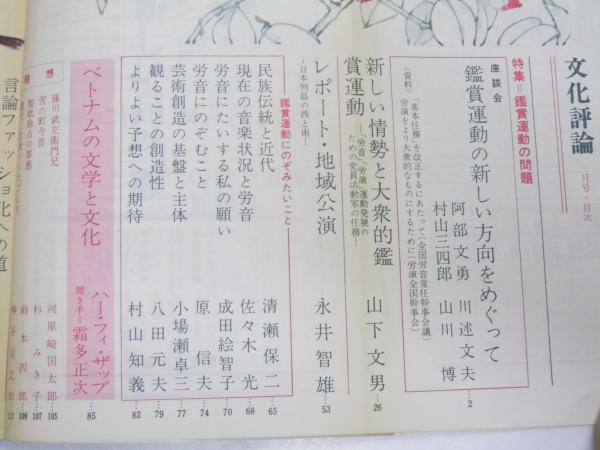 文化評論 三月号・目次
特集=鑑賞運動の問題
座談会
鑑賞運動の新しい方向をめぐって
阿部文勇 川述文夫
村山三四郎 山川 博 …2
〈資料〉「基本任務」を改正するにあたって〈全国労音常任幹事会議〉
労演をより大衆的なものにするために〈労演全国幹事会〉
新しい情勢と大衆的鑑賞運動
―「労音」「労演」運動発展のための党員活動家の任務―
山下文男 …26
レポート・地域公演
―日本列島の西と南―
永井智雄 …53
鑑賞運動にのぞみたいこと
民族伝統と近代 清瀬保二 …65
現在の音楽状況と労音 佐々木光 …68
労音にたいする私の願い 成田絵智子 …70
労音にのぞむこと 原 信夫 …74
芸術創造の基盤と主体 小場瀬卓三 …77
観ることの創造性 八田元夫 …79
よりよい予想への期待 村山知義 …82
ベトナムの文学と文化
ハー・フィ・ザップ
聞き手=霜多正次 …85
想
藤川武左衛門兄 河原崎国太郎 105
雪の町今昔 杉 みき子 107
製紙独占の罪悪 鈴木四郎 109
言論ファッショ化への道